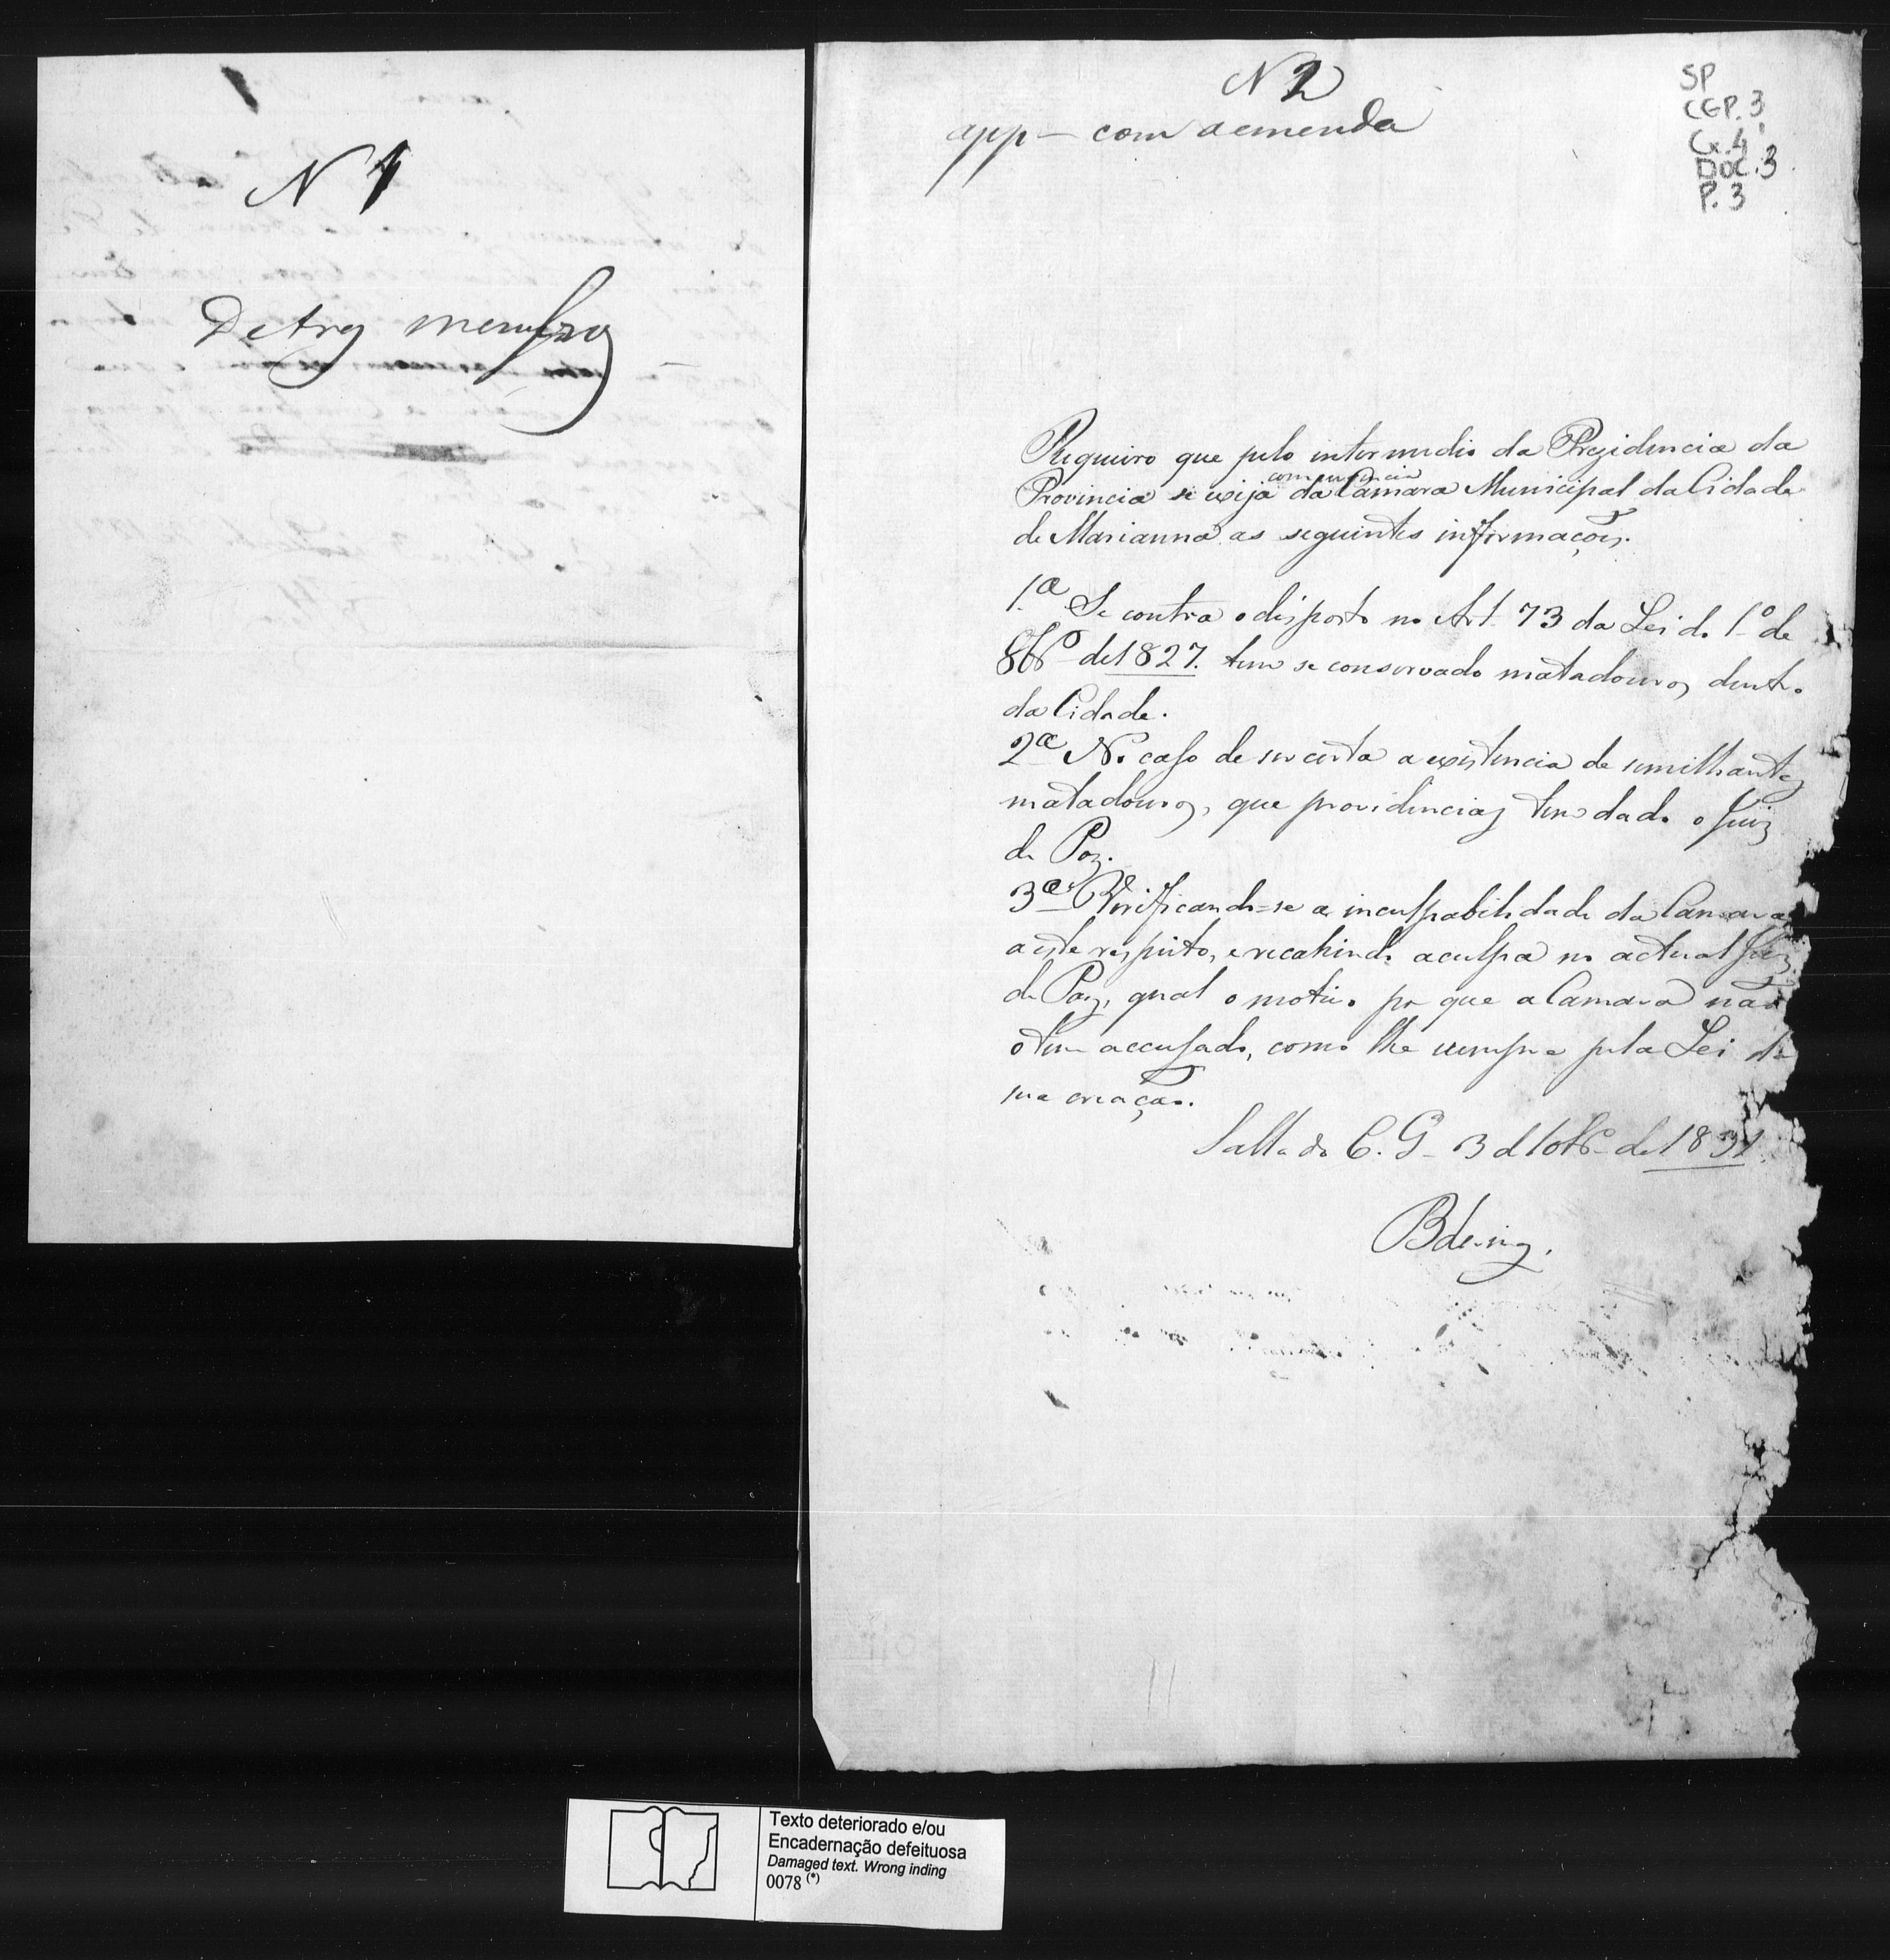 N 1
De tres membros
N 2
app - com a emenda
SP
CGP. 3
Cx. 4
DOC. 3
P. 3
Requeiro que pelo intermedio da Prezidencia da
com urgencia
Provincia se exija da Camara Municipal da Cidade
de Marianna as seguintes informações.
1.ª Se contra o disposto no Art. 73 da Lei do 1º de
8brº de 1827. tem se conservado matadouros dentro
da Cidade.
2ª No caso de ser certa a existencia de similhantes
matadouros, que providencias tem dado o Juiz
de Paz.
3ª Virificando-se a inculpabilidade da Camara
a este respeito, e recahindo a culpa no actual Juiz
de Paz, qual o motivo por que a Camara não
o tem accusado, como lhe cumpre pela Lei de
sua creação.
Salla do C. G. 3 d 10br de 1831
Texto deteriorado e/ou
Encadernação defeituosa
Damaged text. Wrong inding
0078 (*)